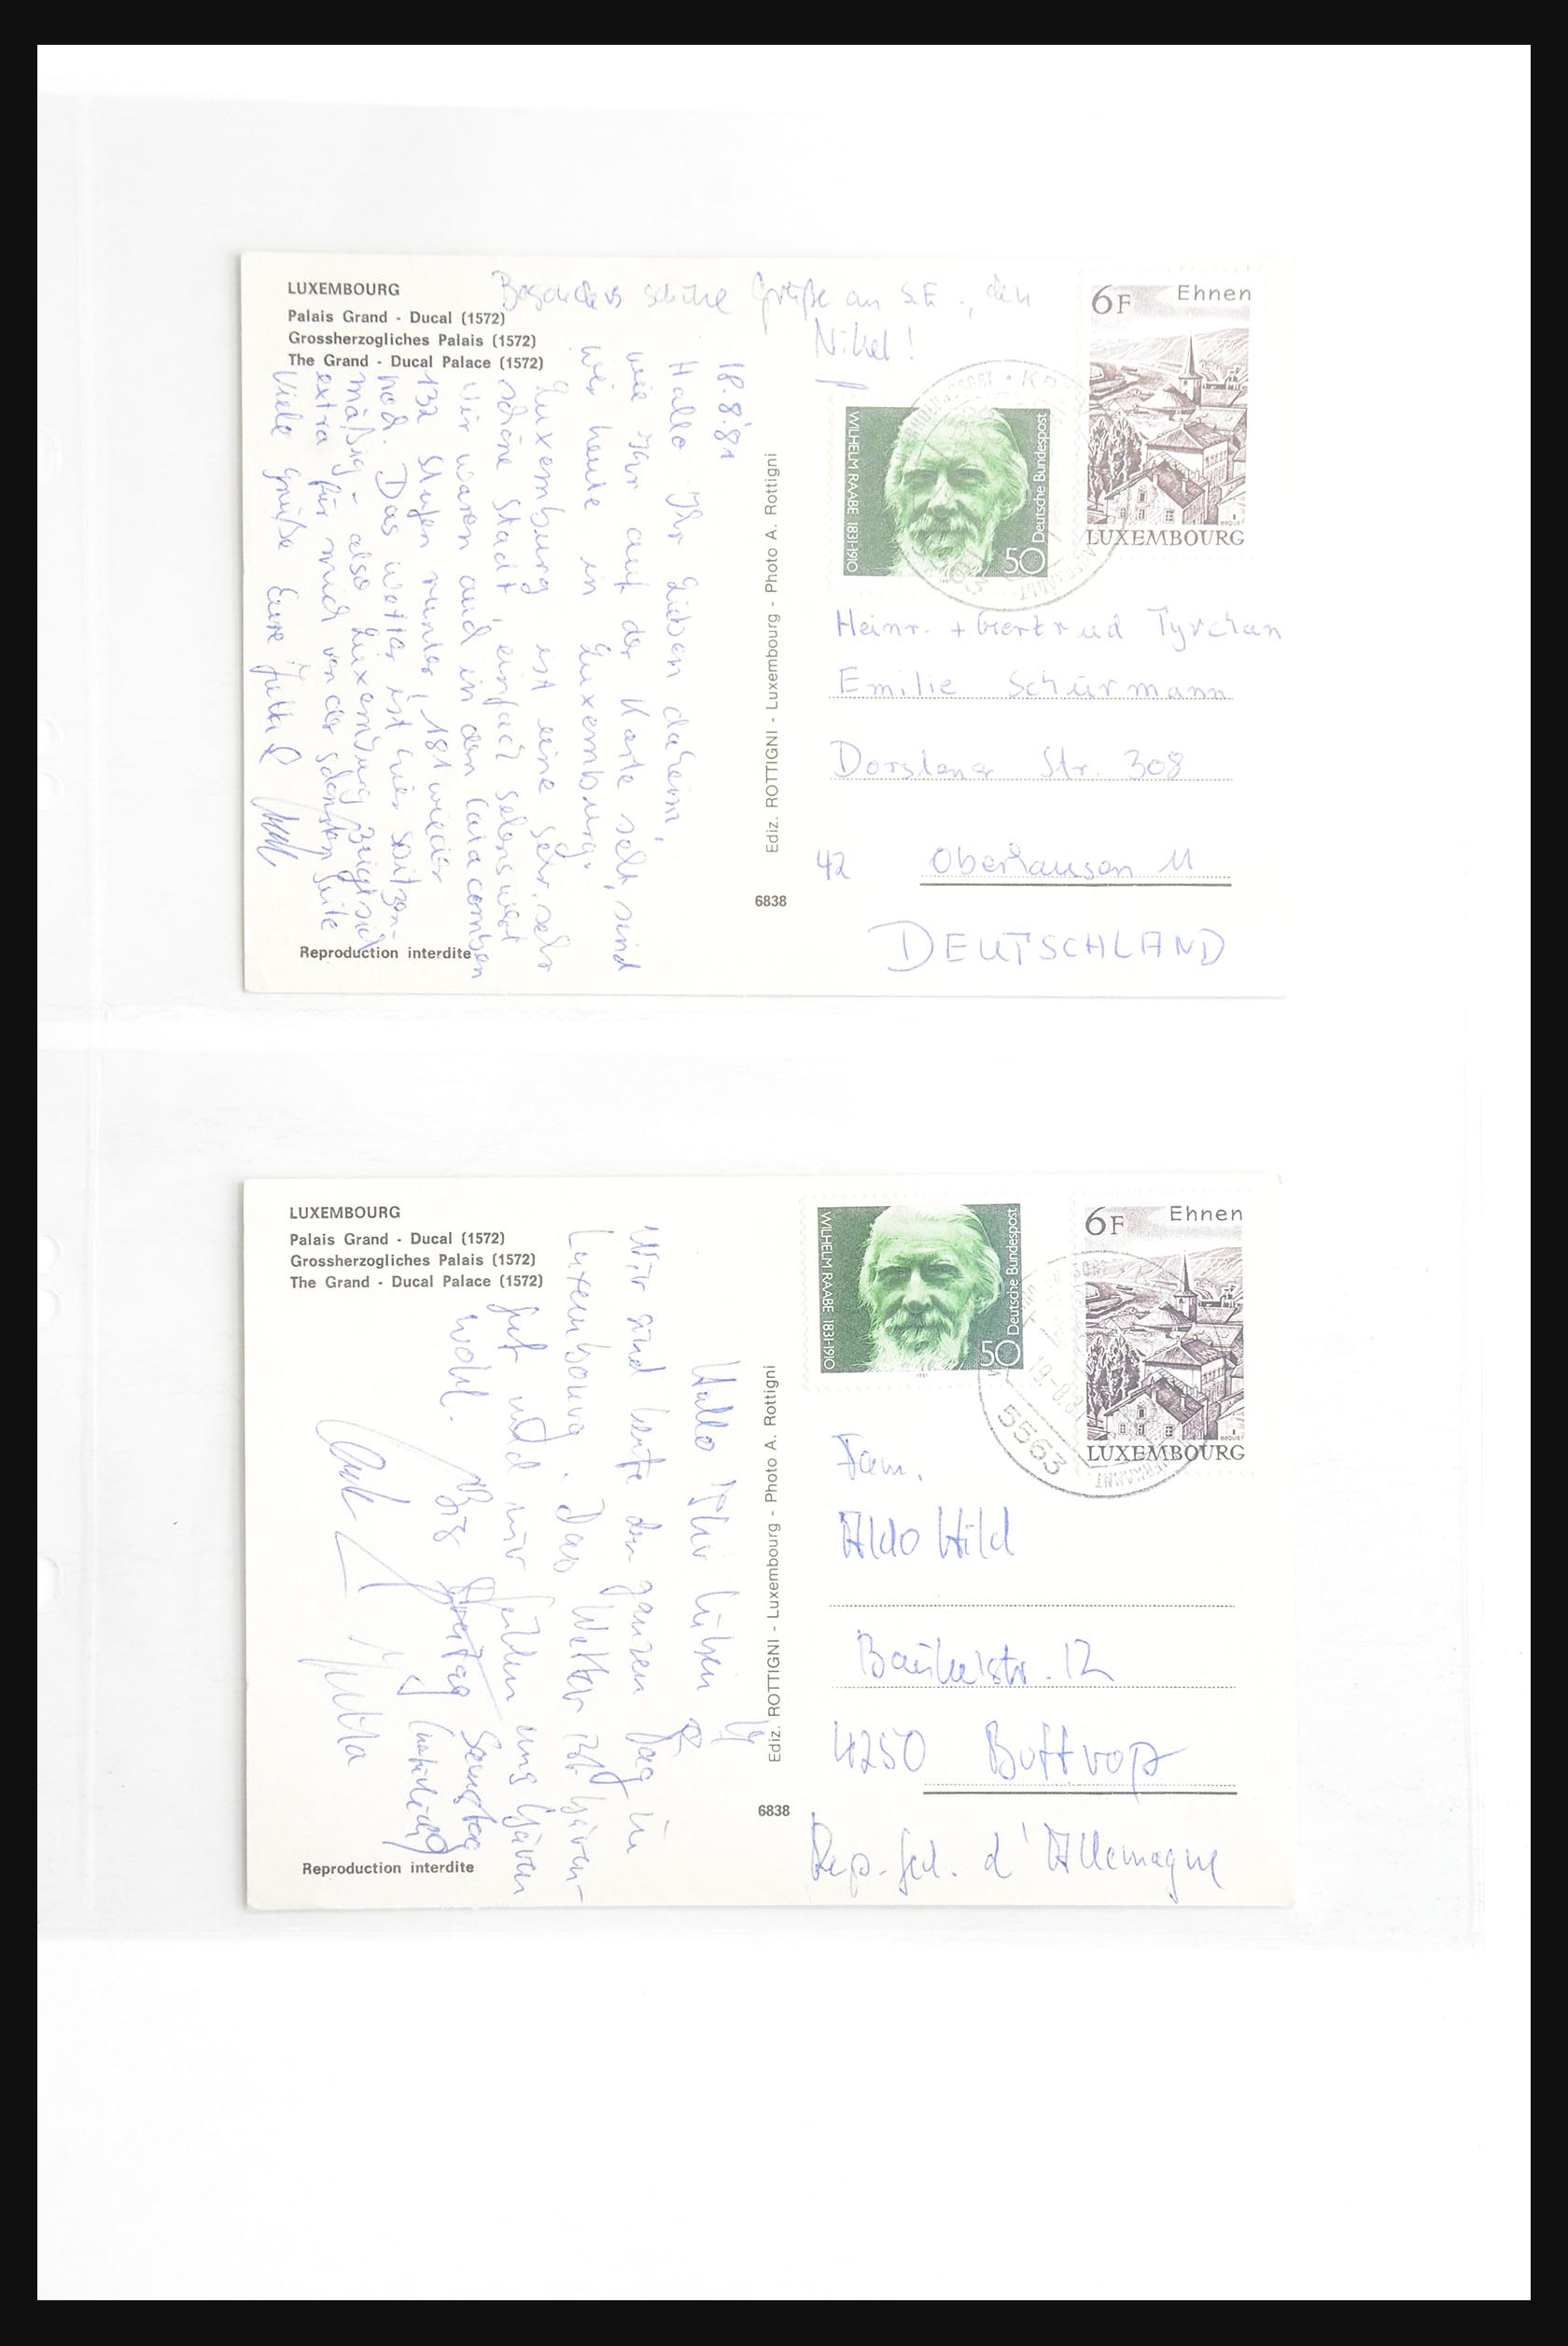 LUXEMBOURG
Palais Grand - Ducal (1572)
Grossherzogliches Palais (1572)
The Grand - Ducal Palace (1572)
schöne Grüße an S.E.,
18.8.81
Hallo Ihr Lieben daheim,
wie Ihr auf der Karte seht, sind
wir heute in Luxemburg.
Luxemburg ist eine sehr, sehr
schöne Stadt, einfach sehenswert
Wir waren auch in den Catacomben
132 Stufen runter, 181 wieder
hoch. Das Wetter ist hier spitzen-
mäßig - also Luxemburg zeigt sich
extra für mich von der schönsten Seite
Viele Grüße Eure Jutta &
Reproduction interdite
Ediz. ROTTIGNI - Luxembourg - Photo A. Rottigni
6838
WILHELM RAABE 1831-1910
Deutsche Bundespost
50
6F Ehnen
LUXEMBOURG
Heinr. + Gertrud
Emilie Schürmann
Dorstener Str. 308
42 Oberhausen 11
DEUTSCHLAND
LUXEMBOURG
Palais Grand - Ducal (1572)
Grossherzogliches Palais (1572)
The Grand - Ducal Palace (1572)
Hallo Ihr Lieben
Wir sind heute den ganzen Tag in
Luxembourg. Das Wetter ist
gut und wir fühlen uns
wohl. Bis Freitag Samstag
Jutta
Reproduction interdite
Ediz. ROTTIGNI - Luxembourg - Photo A. Rottigni
6838
WILHELM RAABE 1831-1910
Deutsche Bundespost
50
6F Ehnen
LUXEMBOURG
5563
Fam.
Aldo Hild
12
4250 Bottrop
Rep. fed. d'Allemagne